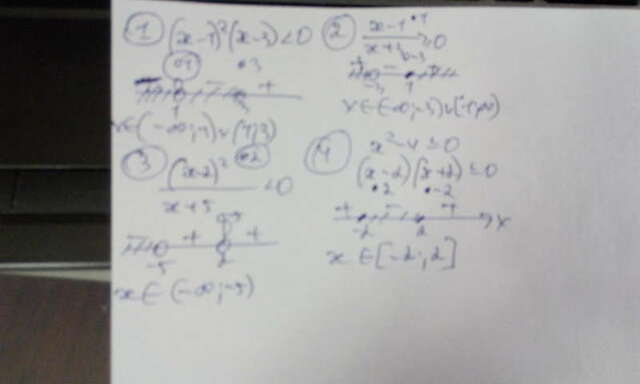 1 (x-1)²(x-3)<0
•1 •3
- - +
1 3
x∈(-∞;1)∪(1;3)
2 x-1 •1
x+3 ≥0
+ - +
-3 1
x∈(-∞;-3)∪[1;+∞)
3 (x-2)² •2
x+5 <0
-5
- + +
-5 2
x∈(-∞;-5)
4 x²-4≤0
(x-2)(x+2)≤0
•2 •-2
+ - + x
-2 2
x∈[-2;2]